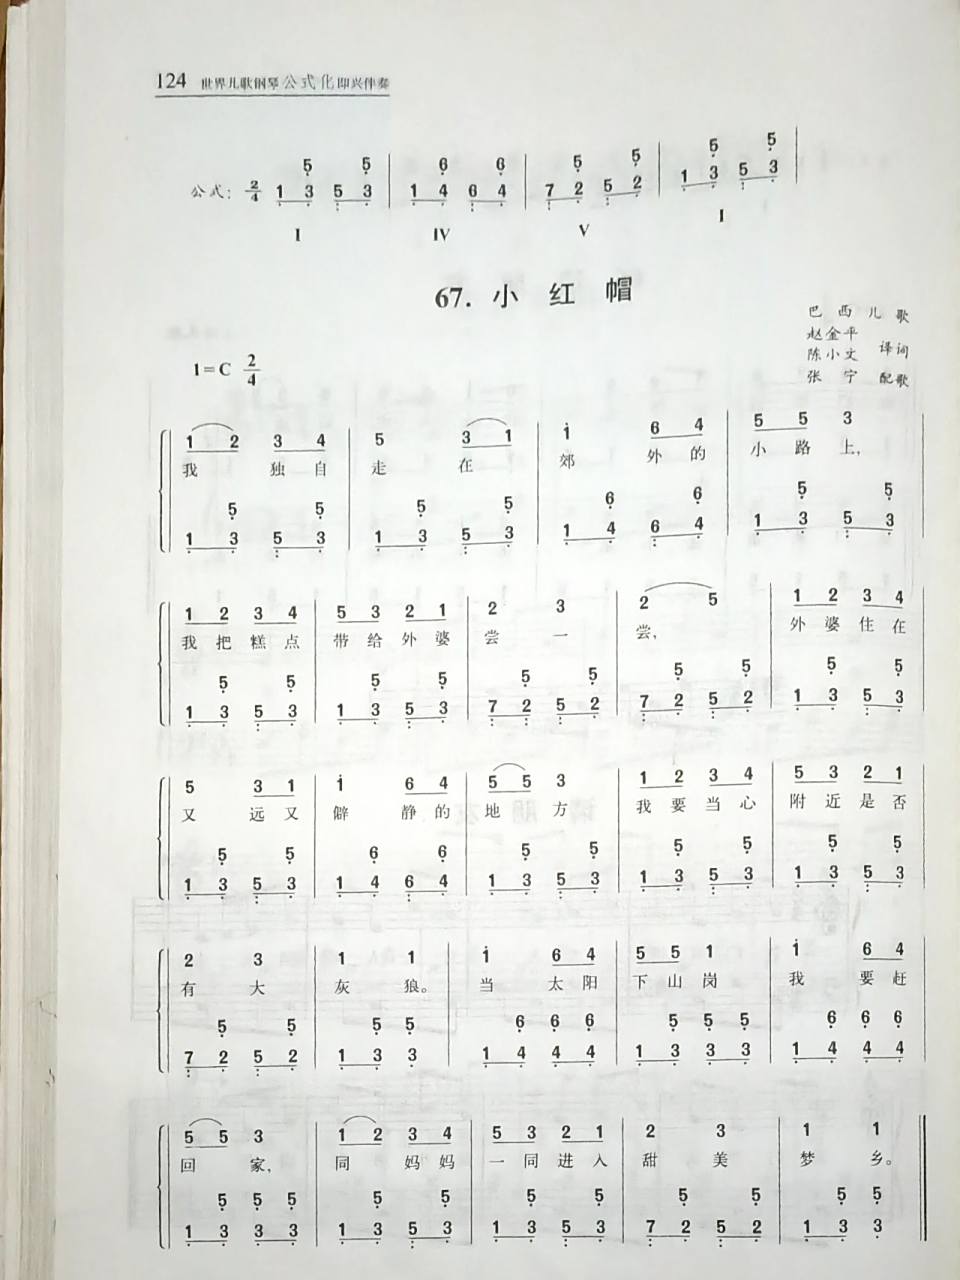 124 世界儿歌钢琴公式化即兴伴奏
5 5 6 6 5 5 5 5
公式: 2/4 1 3 5 3 | 1 4 6 4 | 7 2 5 2 | 1 3 5 3 |
I IV V I
67. 小 红 帽
巴 西 儿 歌
赵金平
陈小文 译词
张 宁 配歌
1=C 2/4
1 2 3 4 | 5 3 1 | i 6 4 | 5 5 3 |
我 独 自 走 在 郊 外 的 小 路 上,
5 5 5 5 6 6 5 5
1 3 5 3 | 1 3 5 3 | 1 4 6 4 | 1 3 5 3 |
1 2 3 4 | 5 3 2 1 | 2 3 | 2 5 | 1 2 3 4 |
我 把 糕 点 带 给 外 婆 尝 一 尝, 外 婆 住 在
5 5 5 5 5 5 5 5 5 5
1 3 5 3 | 1 3 5 3 | 7 2 5 2 | 7 2 5 2 | 1 3 5 3 |
5 3 1 | i 6 4 | 5 5 3 | 1 2 3 4 | 5 3 2 1 |
又 远 又 僻 静 的 地 方 我 要 当 心 附 近 是 否
5 5 6 6 5 5 5 5 5 5
1 3 5 3 | 1 4 6 4 | 1 3 5 3 | 1 3 5 3 | 1 3 5 3 |
2 3 | 1 1 | i 6 4 | 5 5 1 | i 6 4 |
有 大 灰 狼。 当 太 阳 下 山 岗 我 要 赶
5 5 5 5 6 6 6 5 5 5 6 6 6
7 2 5 2 | 1 3 3 | 1 4 4 4 | 1 3 3 3 | 1 4 4 4 |
5 5 3 | 1 2 3 4 | 5 3 2 1 | 2 3 | 1 1
回 家, 同 妈 妈 一 同 进 入 甜 美 梦 乡。
5 5 5 5 5 5 5 5 5 5 5
1 3 3 3 | 1 3 5 3 | 1 3 5 3 | 7 2 5 2 | 1 3 3